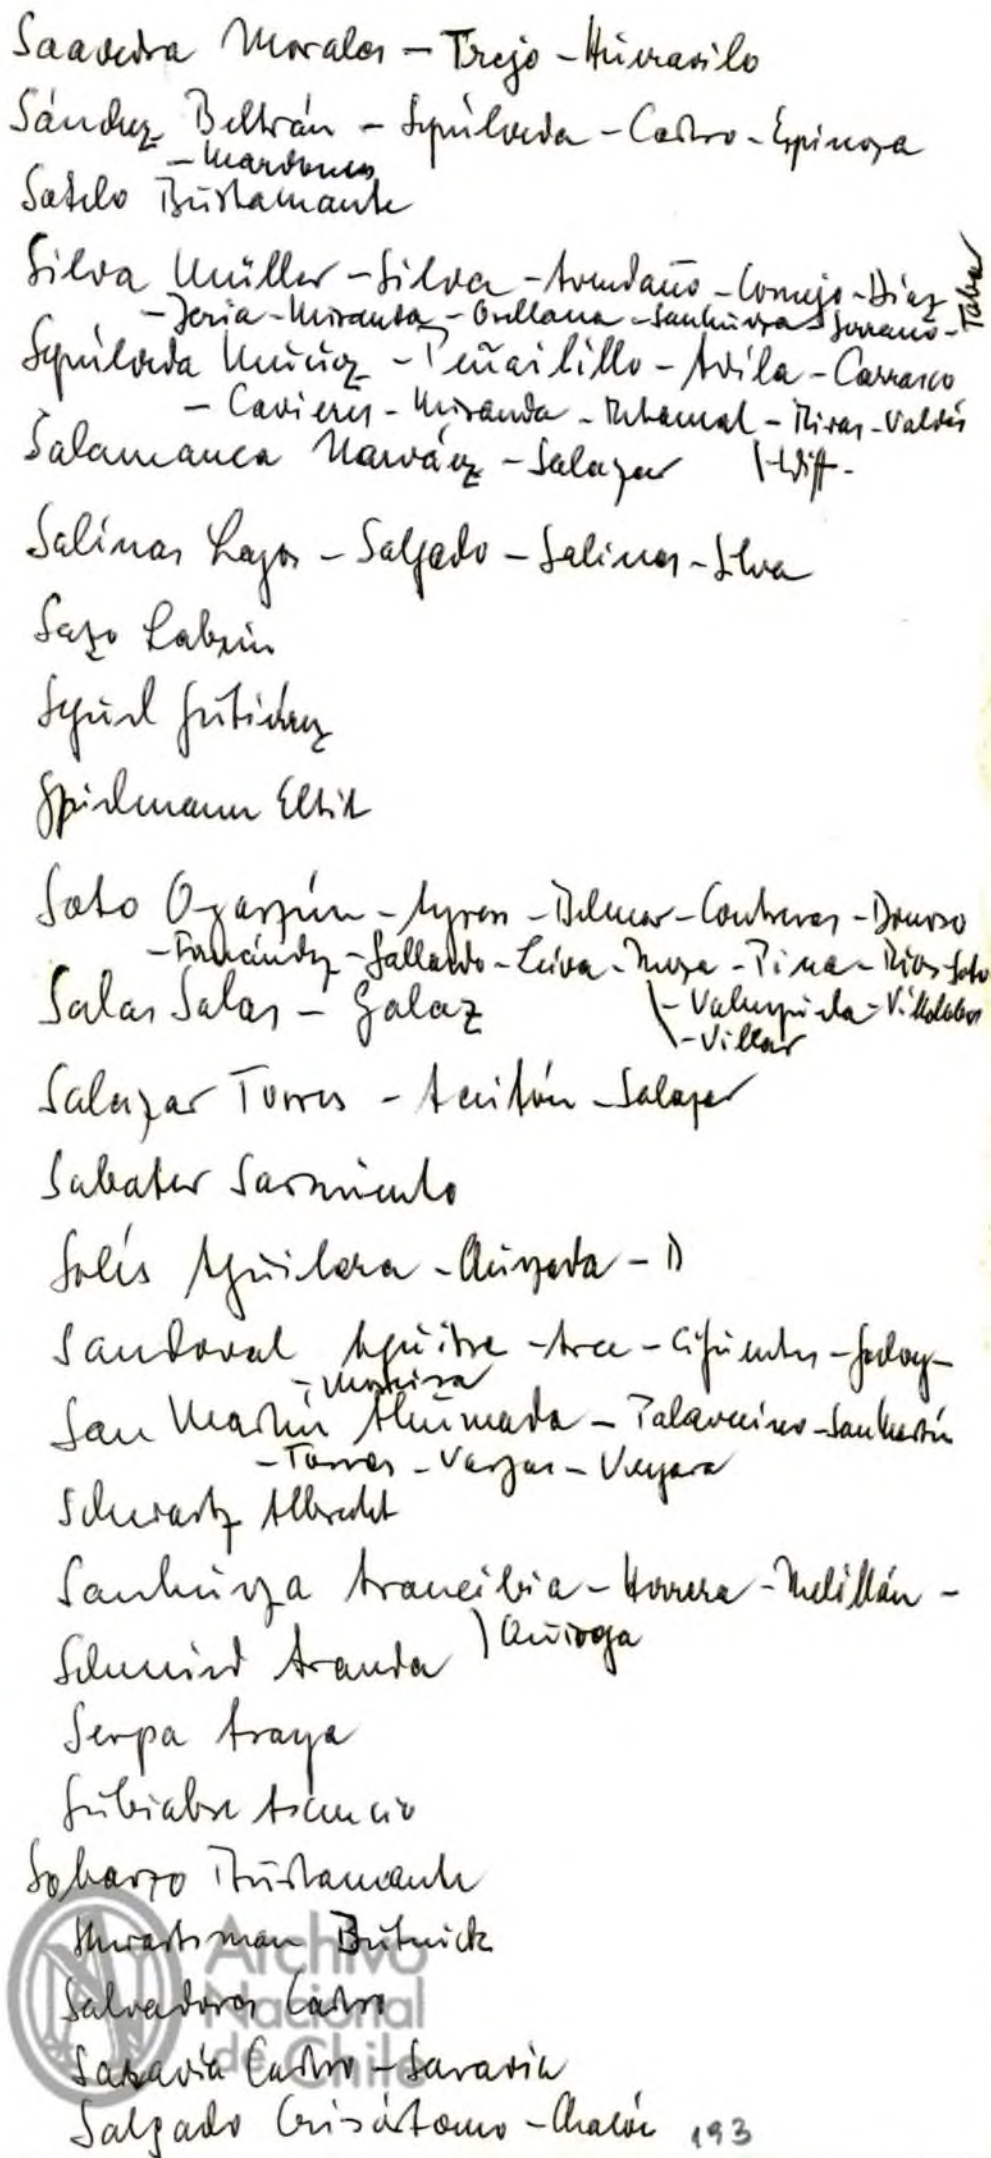 Saavedra Morales - Trejo - Huiravilo
Sánchez Beltrán - Sepúlveda - Castro - Espinoza
- Mardones
Sotelo Bustamante
Silva Müller - Silva - Avendaño - Cornejo - Díaz
- Jeria - Miranda - Orellana - Sanhueza - Serrano - Tobar
Sepúlveda Muñoz - Peñailillo - Avila - Carrasco
- Cavieres - Miranda - Retamal - Rivas - Valdés
Salamanca Narváez - Salazar
Salinas Lagos - Salgado - Salinas - Silva
Sazo Labrín
Seguel Gutiérrez
Spielmann Eltit
Soto Oyarzún - Ayress - Belmar - Contreras - Donoso
- Fernández - Gallardo - Leiva - Meza - Pina - Ríos - Soto
Salas Salas - Galaz
- Valenzuela - Villalobos
- Villar
Salazar Torres - Aceitón - Salazar
Sabater Sarmiento
Solís Aguilera - Quezada - D
Sandoval Aguirre - Arce - Cifuentes - Godoy -
San Martín Ahumada - Palavecino - San Martín
- Torres - Vargas - Vergara
Schwartz Albrecht
Sanhueza Arancibia - Herrera - Melillán -
Quiroga
Schmied Aranda
Serpa Araya
Subiabre Asencio
Sobarzo Bustamante
Shvartsman Butnick
Salvadores Castro
Saravia Castro - Saravia
Salgado Crisóstomo - Chacón 193
Archivo
Nacional
de Chile